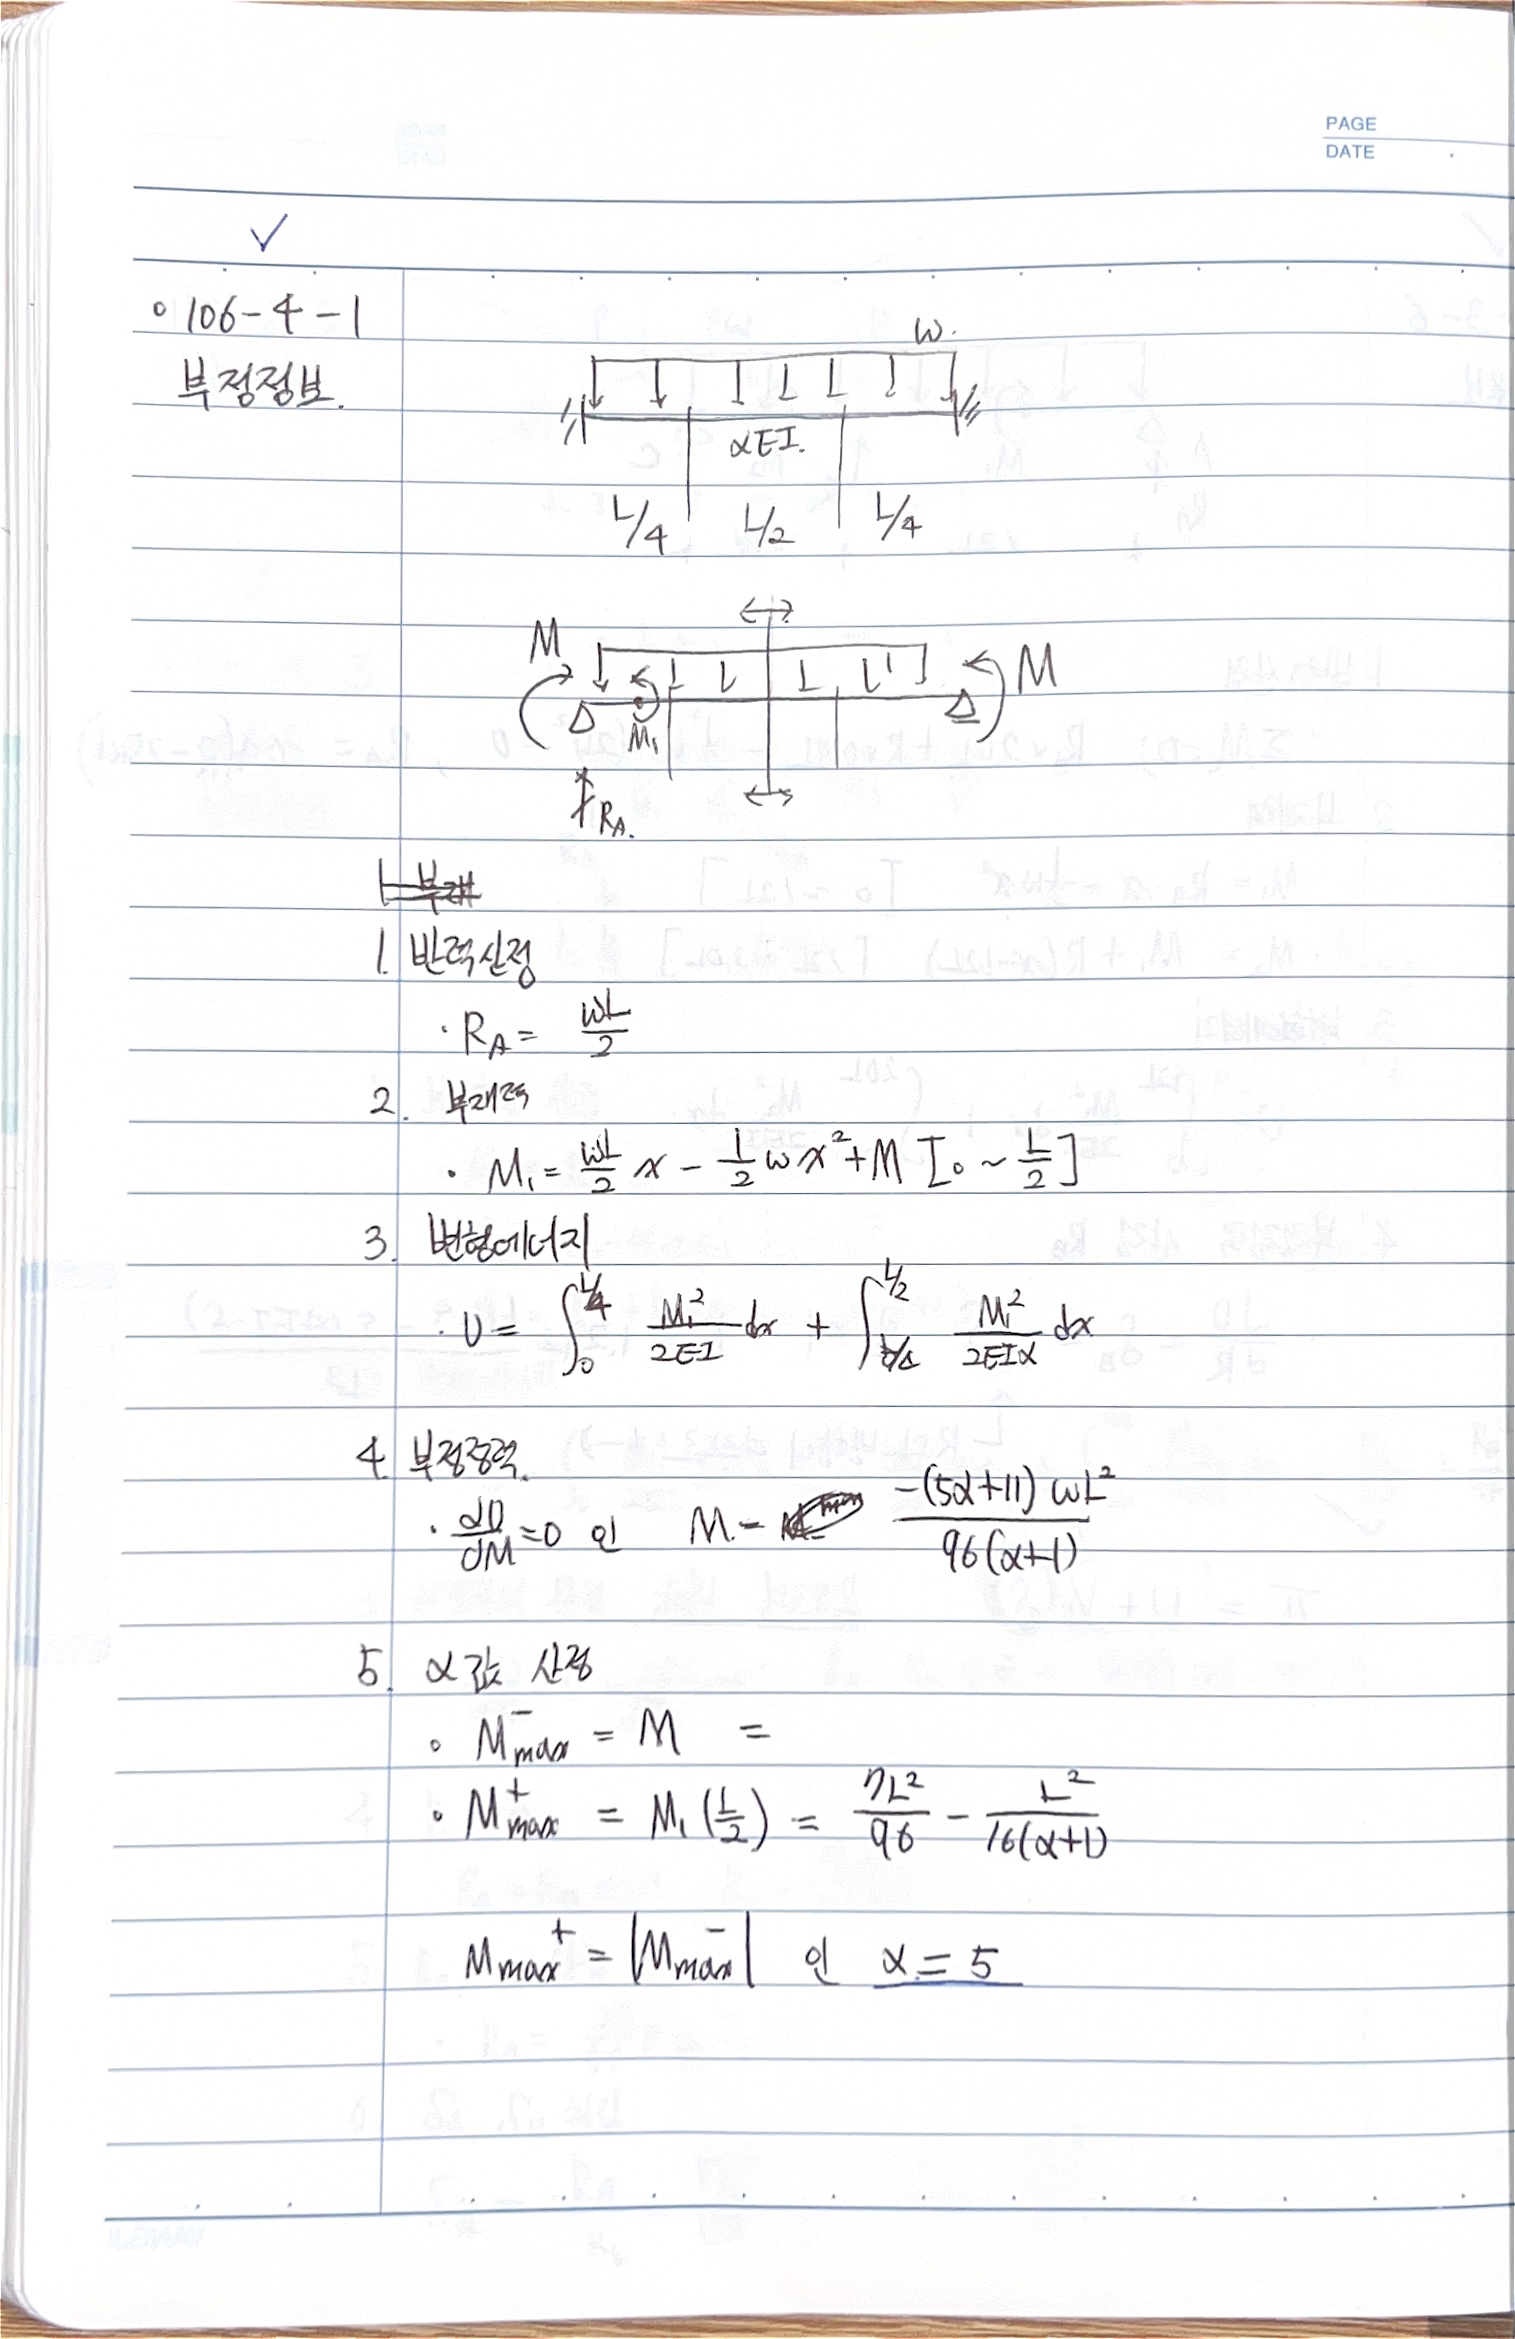 PAGE
DATE
✓
° 106-4-1
부정정보.
w.
αEI.
L/4 L/2 L/4
M M
M₁
R_A.
1. 반력산정
· R_A = wL/2
2. 부재력
· M₁ = wL/2 x - 1/2 w x² + M [0 ~ L/2]
3. 변형에너지
· U = ∫₀^(L/4) M₁²/2EI dx + ∫_(L/4)^(L/2) M₁²/2EIα dx
4. 부정정력.
· dU/dM = 0 인 M = -(5α+11) wL² / 96(α+1)
5. α값 산정
· M⁻max = M =
· M⁺max = M₁(L/2) = 7L²/96 - L²/16(α+1)
Mmax⁺ = |Mmax⁻| 인 α = 5